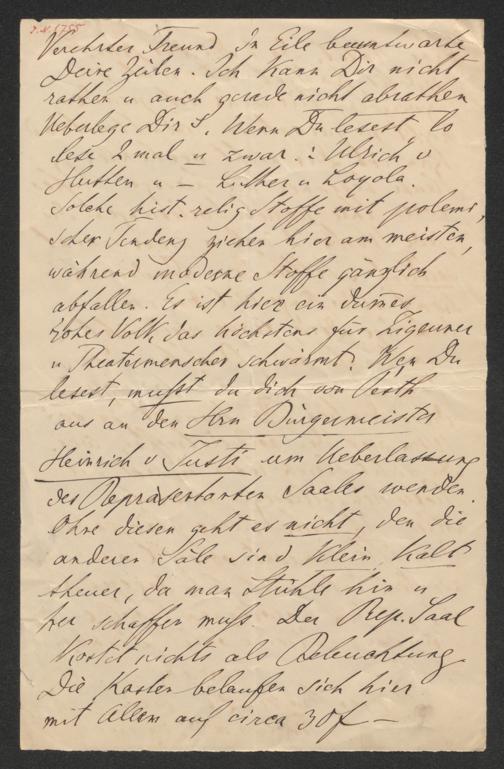 J.N. 6755
Verehrter Freund In Eile beantworte
Deine Zeilen. Ich kann Dir nicht
rathen u auch gerade nicht abrathen
Ueberlege Dir's, Wenn Du lesest, so
lese 2 mal u zwar: Ulrich v
Hutten u – Luther u Loyola.
Solche hist. relig Stoffe mit polemi,
scher Tendenz ziehen hier am meisten,
während moderne Stoffe gänglich
abfallen. Es ist hier ein dumes
rohes Volk das höchstens für Zigeuner
u Theatermenscher schwärmt. Wen Du
lesest, mußt du dich von Pesth
aus an den Hrn Bürgermeister
Heinrich v Justi um Ueberlassung
des Repräsentanten Saales wenden.
Ohne diesen geht es nicht, den die
anderen Säle sind klein, kalt
theuer, da man Stühle hin u
her schaffen muß. Der Rep. Saal
kostet nichts als Beleuchtung
Die Kosten belaufen sich hier
mit Allem auf circa 30f –